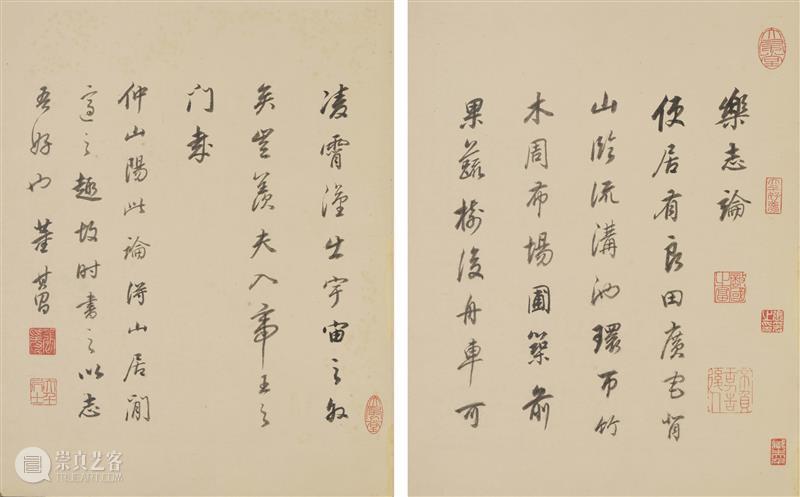 樂志論
使居有良田廣宅背
山臨流溝池環帀竹
木周布場圃築前
果蔬樹後舟車可
凌霄漢出宇宙之外
矣豈羨夫入帝王之
門哉
仲山陽此論得山居閒
適之趣故时書之以志
吾好也 董其昌
崇真艺客